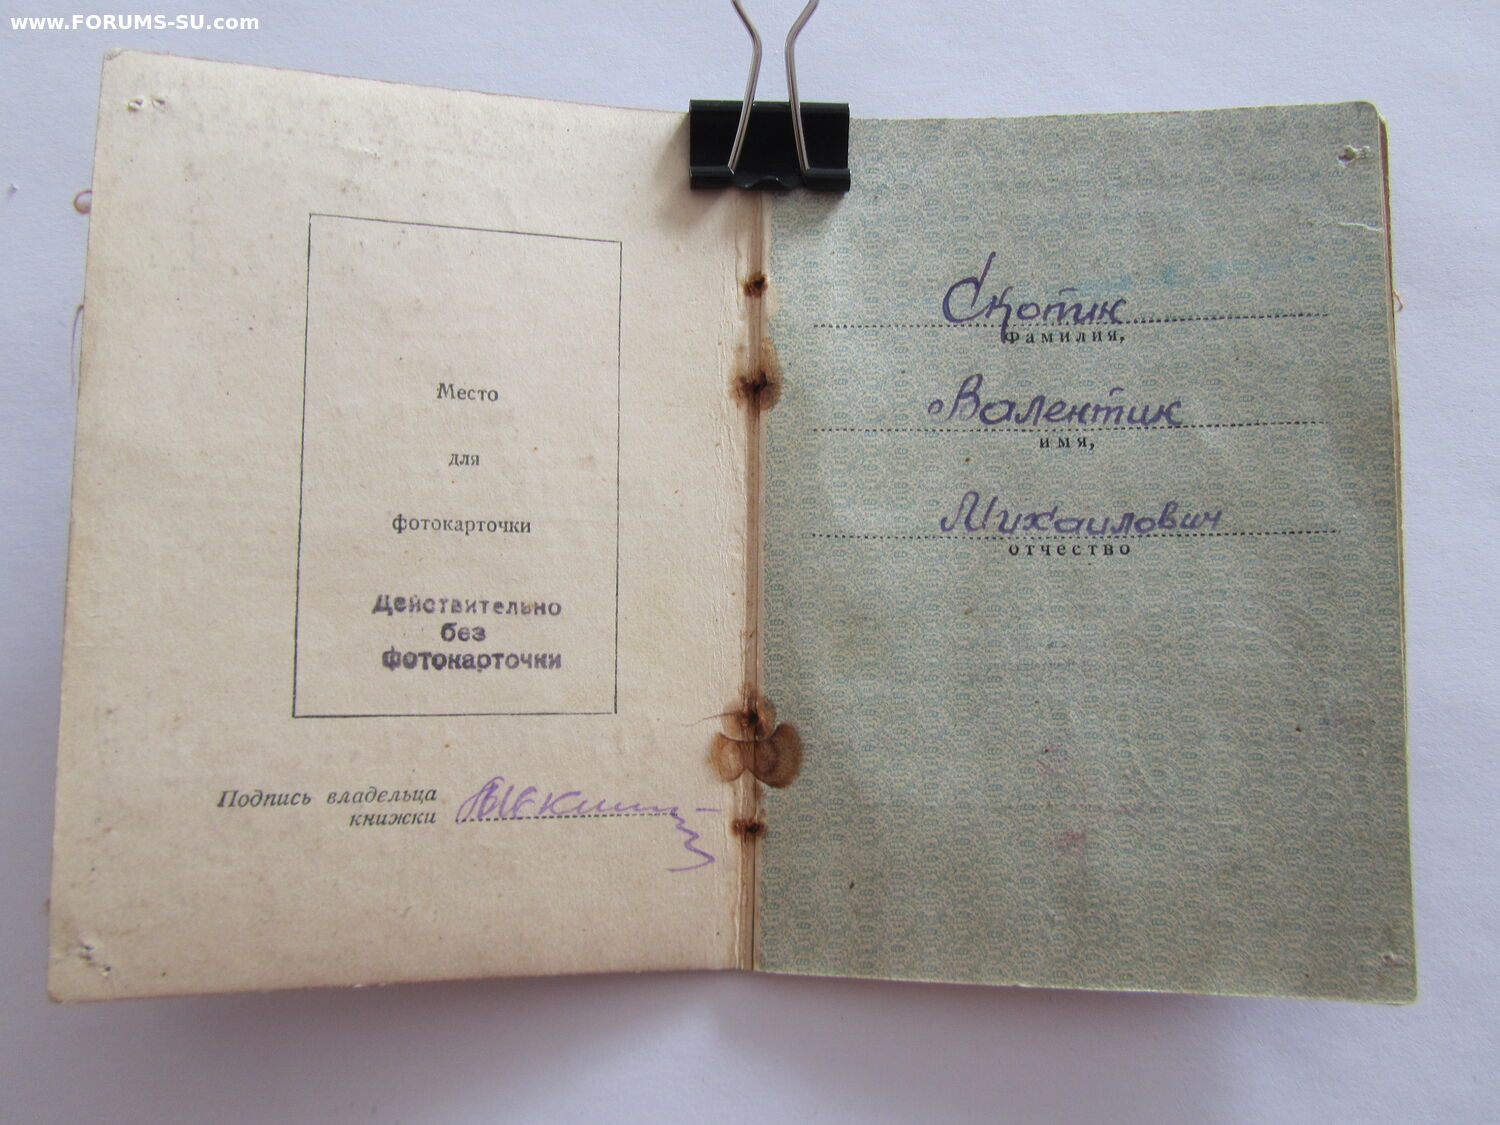 www.FORUMS-SU.com
Место
для
фотокарточки
Действительно
без
фотокарточки
Подпись владельца
книжки
Скотик
Фамилия,
Валентик
имя,
Михаилович
отчество